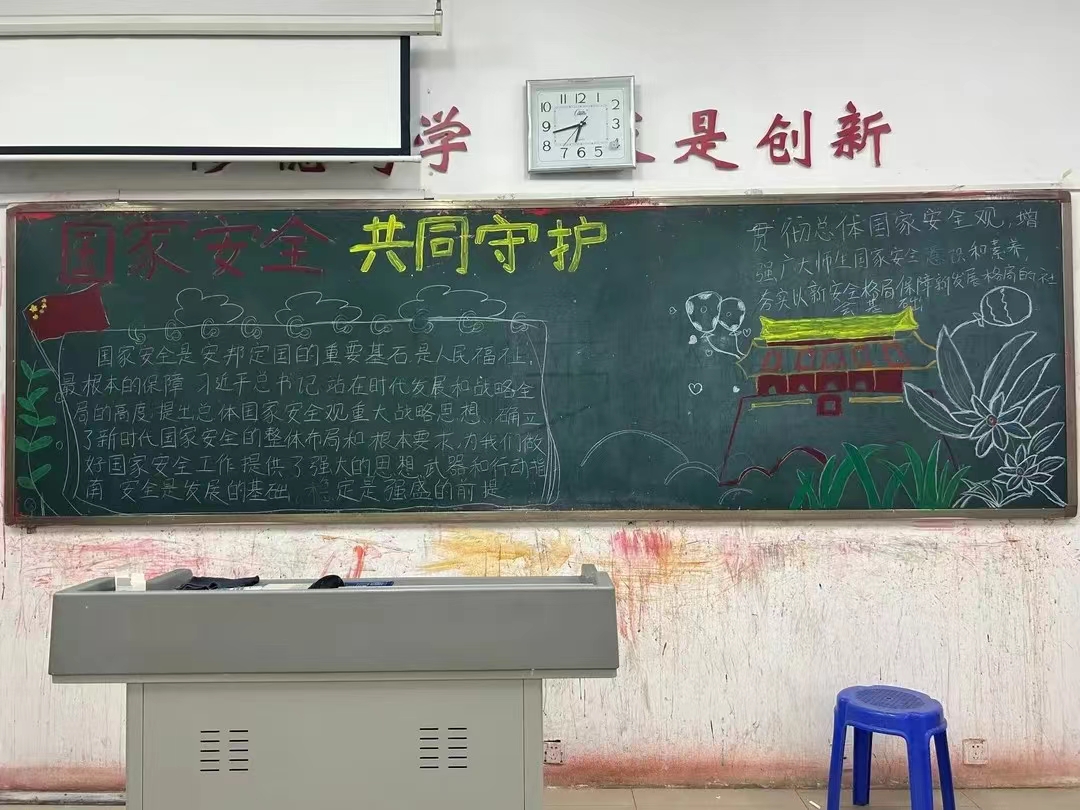 学 是创新
10 11 12 1 2
9 3
8 7 6 5
国家安全 共同守护
贯彻总体国家安全观,增
强广大师生国家安全意识和素养,
夯实以新安全格局保障新发展格局的社
会基础
国家安全是安邦定国的重要基石是人民福祉
最根本的保障 习近平总书记站在时代发展和战略全
局的高度提出总体国家安全观重大战略思想,确立
了新时代国家安全的整体布局和根本要求,为我们做
好国家安全工作提供了强大的思想武器和行动指
南 安全是发展的基础,稳定是强盛的前提